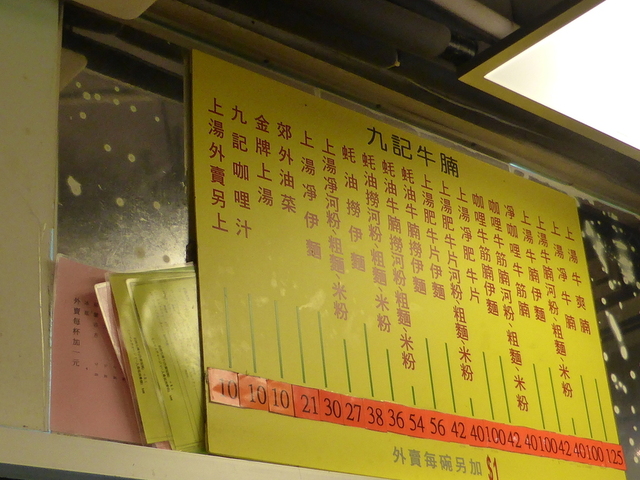 九記牛腩
上湯牛爽腩
上湯淨牛腩
上湯牛腩河粉、粗麵、米粉
上湯牛腩伊麵
淨咖哩牛筋腩
咖哩牛筋腩河粉、粗麵、米粉
咖哩牛筋腩伊麵
上湯淨肥牛片
上湯肥牛片河粉、粗麵、米粉
上湯肥牛片伊麵
蚝油牛腩撈河粉粗麵、米粉
蚝油牛腩撈伊麵
蚝油撈河粉粗麵、米粉
蚝油撈伊麵
上湯淨河粉粗麵、米粉
上湯淨伊麵
郊外油菜
金牌上湯
九記咖哩汁
上湯外賣另上
10 10 10 21 30 27 38 36 54 56 42 40 100 42 40 100 42 40 100 125
外賣每碗另加 $1
外賣每杯加一元